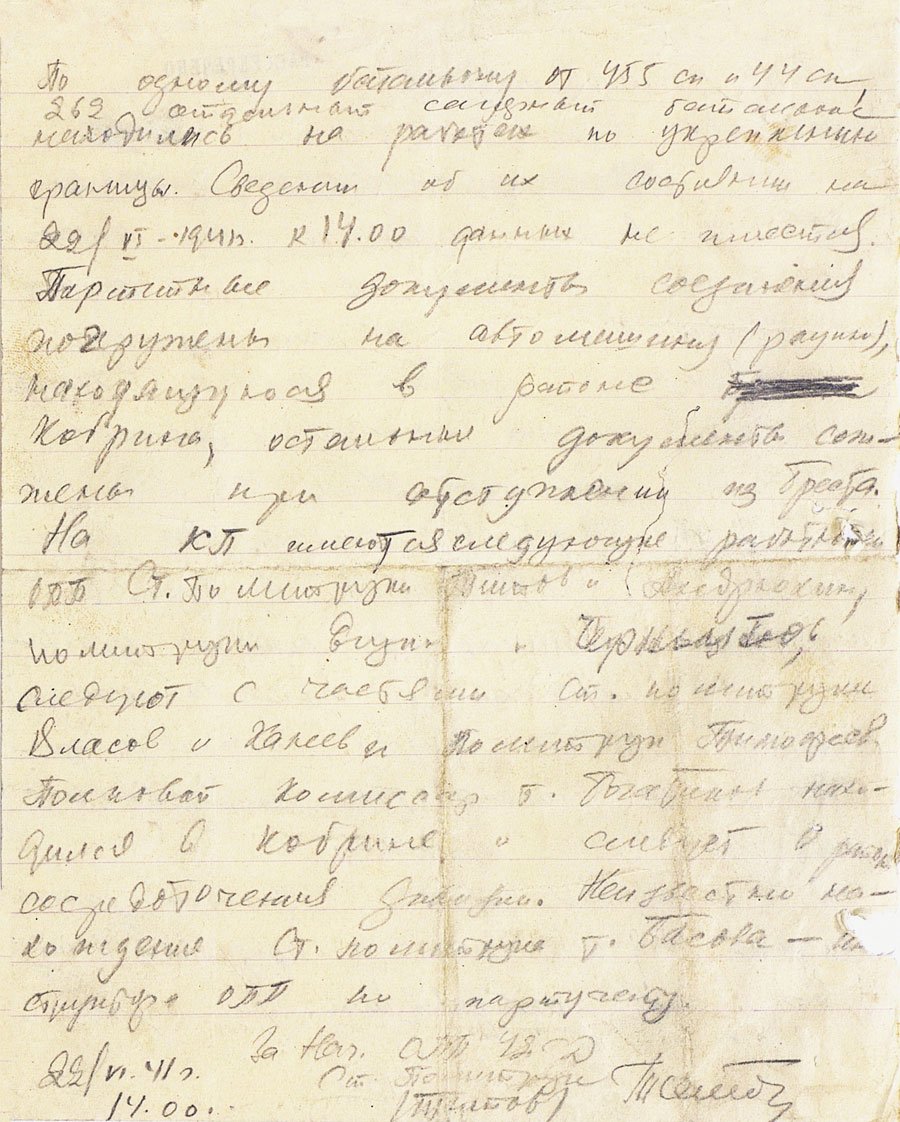 По одному батальону от 455 сп и 44 сп,
262 отдельный саперный батальоны
находились на работах по укреплению
границы. Сведений об их состоянии на
22/VI-1941г. к 14.00 данных не имеется.
Партийные документы соединения
погружены на автомашину (рацию),
находящуюся в районе
Кобрина, остальные документы сож-
жены при отступлении из Бреста.
На КП имеются следующие работники
ОПП Ст. Политруки и
политруки и
следуют с частями Ст. политруки
Власов и и политрук Тимофеев.
Полковой комиссар т. нахо-
дился в Кобрине и следует в район
сосредоточения дивизии. Неизвестно на-
хождение Ст. политрука т. Басова – ин
структора ОПП по партучету.
За Нач. ОПП 42сд
22/VI.41г. Ст. Политрук
14.00.